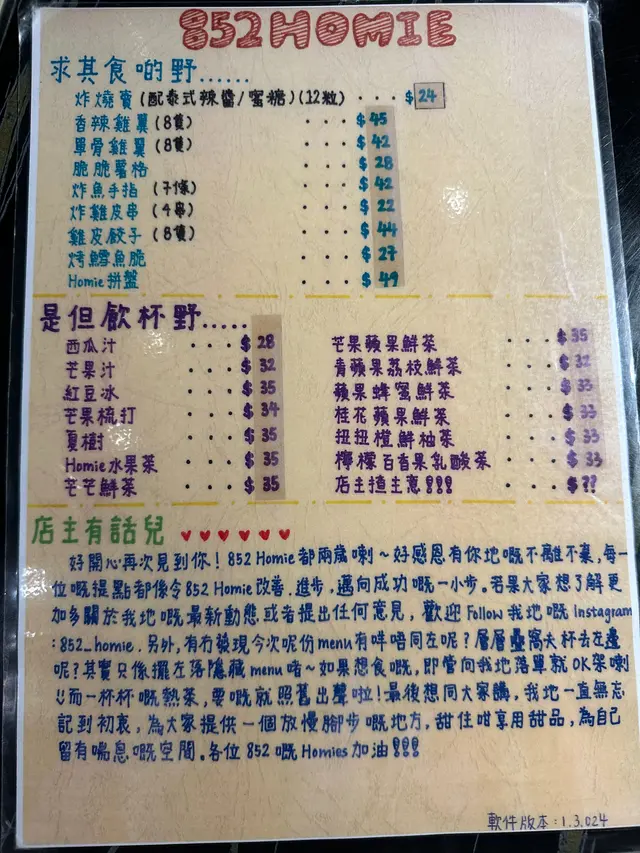 852HOMIE
求其食啲野......
炸燒賣(配泰式辣醬/蜜糖)(12粒) ... $24
香辣雞翼(8隻) ... $45
單骨雞翼(8隻) ... $42
脆脆薯格 ... $28
炸魚手指(7條) ... $42
炸雞皮串(4串) ... $22
雞皮餃子(8隻) ... $44
烤鱈魚脆 ... $27
Homie拼盤 ... $49
是但飲杯野.....
西瓜汁 ... $28
芒果汁 ... $32
紅豆冰 ... $35
芒果梳打 ... $34
夏樹 ... $35
Homie水果茶 ... $35
芒芒鮮茶 ... $35
芒果蘋果鮮茶 ... $35
青蘋果荔枝鮮茶 ... $32
蘋果蜂蜜鮮茶 ... $33
桂花蘋果鮮茶 ... $33
扭扭橙鮮柚茶 ... $33
檸檬百香果乳酸茶 ... $33
店主揸主意!!! ... $??
店主有話兒 ♥♥♥♥♥♥
好開心再次見到你！852 Homie都兩歲喇～好感恩有你地嘅不離不棄,每一
位嘅提點都係令852 Homie改善.進步,邁向成功嘅一小步。若果大家想了解更
加多關於我地嘅最新動態或者提出任何意見,歡迎Follow我地嘅Instagram
:852_homie.另外,有冇發現今次呢份menu有咩唔同左呢?層層疊窩夫杯去左邊
呢?其實只係擺左落隱藏menu啫～如果想食嘅,即管向我地落單就OK架喇
!!而一杯杯嘅熱茶,要嘅就照舊出聲啦!最後想同大家講,我地一直無忘
記到初衷,為大家提供一個放慢腳步嘅地方,甜住咁享用甜品,為自己
留有喘息嘅空間。各位852嘅Homies加油!!!
軟件版本:1.3.024